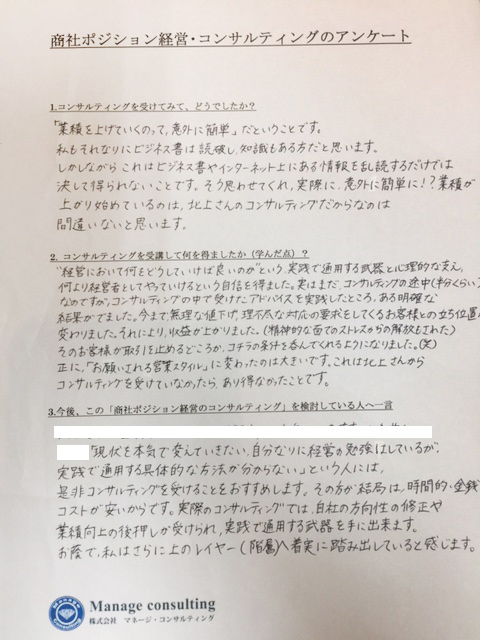 商社ポジション経営・コンサルティングのアンケート
1.コンサルティングを受けてみて、どうでしたか？
「業績を上げていくのって、意外に簡単」だということです。
私もそれなりにビジネス書は読破し、知識もある方だと思います。
しかしながらこれはビジネス書やインターネット上にある情報を乱読するだけでは
決して得られないことです。そう思わせてくれ、実際に、意外に簡単に!?業績が
上がり始めているのは、北上さんのコンサルティングだからなのは
間違いないと思います。
2. コンサルティングを受講して何を得ましたか（学んだ点）？
"経営において何をどうしていけば良いのか"という実践で通用する武器と心理的な支え、
何より経営者としてやっていけるという自信を得ました。実はまだ、コンサルティングの途中(半分くらい)
なのですが、コンサルティングの中で受けたアドバイスを実践したところ、ある明確な
結果がでました。今まで無理な値下げ、理不尽な対応の要求をしてくるお客様との立ち位置が
変わりました。それにより、収益が上がりました。(精神的な面でのストレスからの解放もされた)
そのお客様が取引を止めるどころか、コチラの条件を呑んでくれるようになりました。(笑)
正に、「お願いされる営業スタイル」に変わったのは大きいです。これは北上さんから
コンサルティングを受けていなかったら、あり得なかったことです。
3.今後、この「商社ポジション経営のコンサルティング」を検討している人へ一言
「現状を本気で変えていきたい、自分なりに経営の勉強はしているが、
実践で通用する具体的な方法が分からない」という人には、
是非コンサルティングを受けることをおすすめします。その方が結局は、時間的・金銭
コストが安いからです。実際のコンサルティングでは、自社の方向性の修正や
業績向上の後押しが受けられ、実践で通用する武器を手に出来ます。
お蔭で、私はさらに上のレイヤー(階層)へ着実に踏み出していると感じます。
Manage
Manage consulting
株式会社 マネージ・コンサルティング